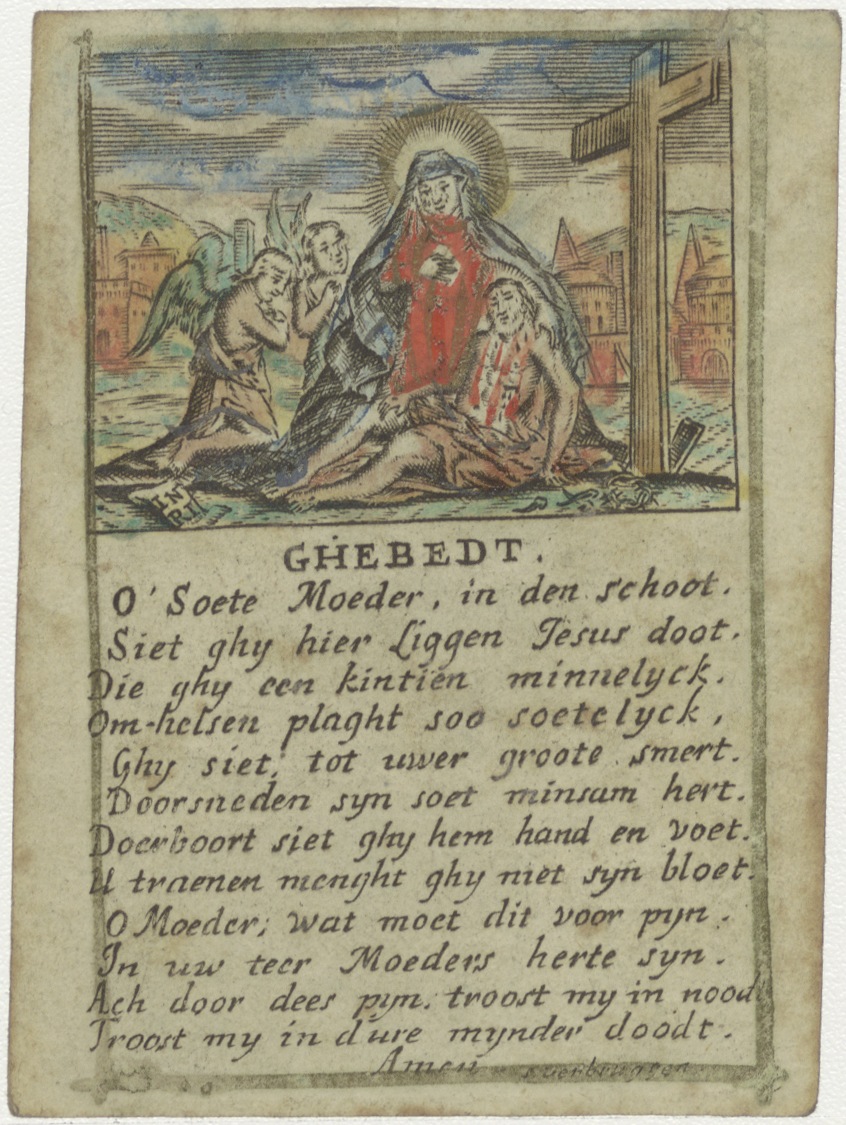 IN
RI
GHEBEDT.
O' Soete Moeder, in den schoot.
Siet ghy hier Liggen Jesus doot.
Die ghy een kintien minnelyck.
Om-helsen plaght soo soetelyck,
Ghy siet, tot uwer groote smert.
Doorsneden syn soet minsam hert.
Doerboort siet ghy hem hand en voet.
U traenen menght ghy met syn bloet.
O Moeder, wat moet dit voor pyn.
In uw teer Moeders herte syn.
Ach door dees pyn. troost my in nood
Troost my in d'ure mynder doodt.
Amen
verbruggen